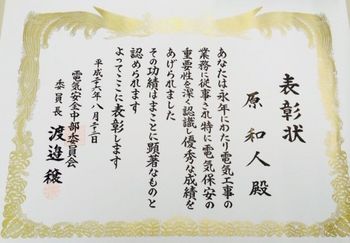 表彰状
原 和人 殿
あなたは永年にわたり電気工事の
業務に従事され特に電気保安の
重要性を深く認識し優秀な成績を
あげられました
その功績はまことに顕著なものと
認められます
よってここに表彰します
平成二十八年八月二十三日
電気安全中部委員会
委員長 渡邉 穣